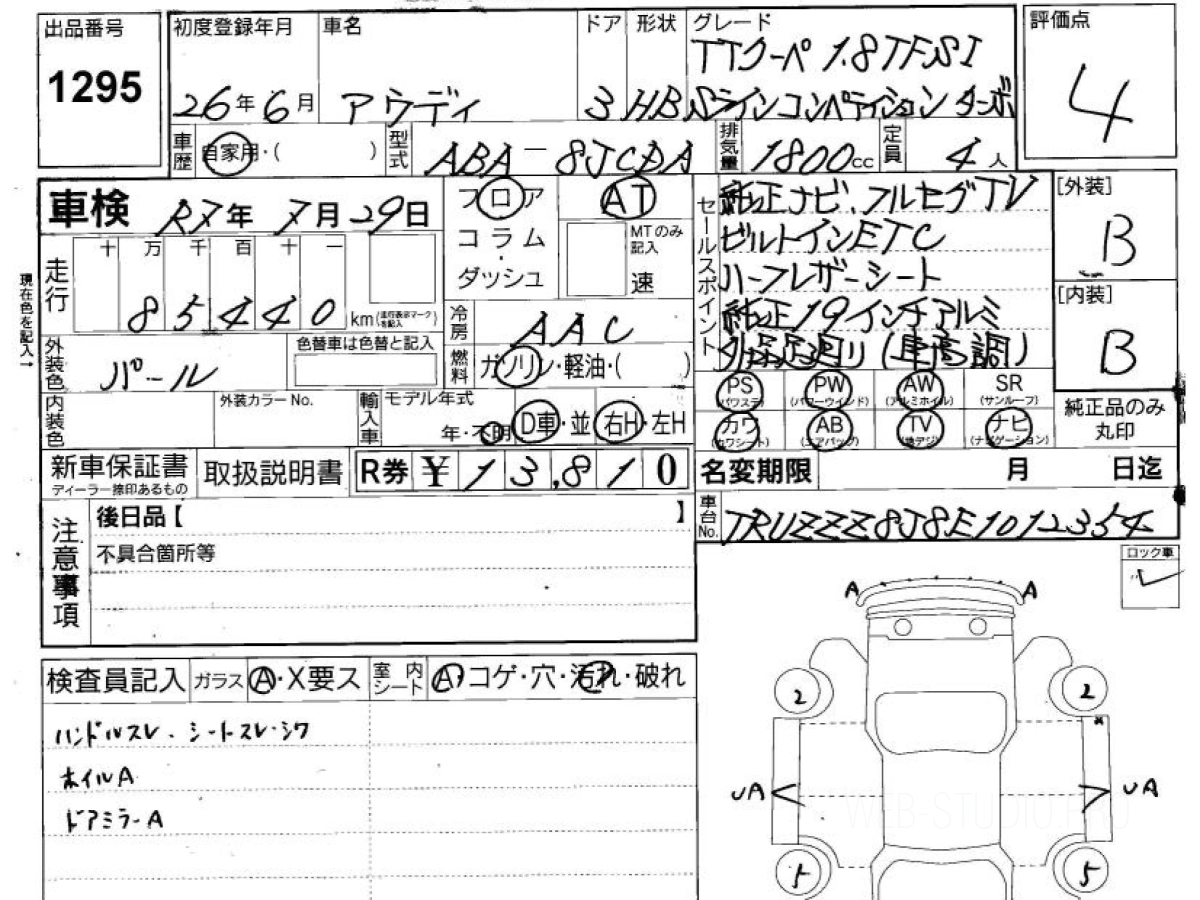 出品番号
1295
初度登録年月
26年6月
車名
アウディ
ドア
3
形状
HB
グレード
TTクーペ 1.8TFSI
Sラインコンペティション ターボ
評価点
4
車歴
自家用・( )
型式
ABA-8JCDA
排気量
1800cc
定員
4人
車検 R7年7月29日
フロア
コラム
・
ダッシュ
AT
MTのみ
記入
速
セールスポイント
純正ナビ、フルセグTV
ビルトインETC
ハーフレザーシート
純正19インチアルミ
外品足廻り(車高調)
[外装]
B
[内装]
B
現在色を記入→
走行
十 万 千 百 十 一
85440 km(走行表示マークを記入)
冷房
AAC
燃料
ガソリン・軽油・( )
外装色
パール
色替車は色替と記入
内装色
外装カラーNo.
輸入車
モデル年式
年・不明
D車・並
右H・左H
PS
(パワステ)
PW
(パワーウインド)
AW
(アルミホイル)
SR
(サンルーフ)
カワ
(カワシート)
AB
(エアバッグ)
TV
(地デジ)
ナビ
(ナビゲーション)
純正品のみ
丸印
新車保証書
ディーラー捺印あるもの
取扱説明書
R券 ¥13,810
名変期限 月 日迄
車台No.
TRUZZZ8J8E1012354
注意事項
後日品【 】
不具合箇所等
ロック車
✓
検査員記入
ガラス
A・X要ス
室内シート
A・コゲ・穴・汚れ・破れ
ハンドルスレ・シートスレ・シワ
ホイルA
ドアミラーA
A A
2 2
×
UA UA
5 5
WEB-STUDIO.PRO